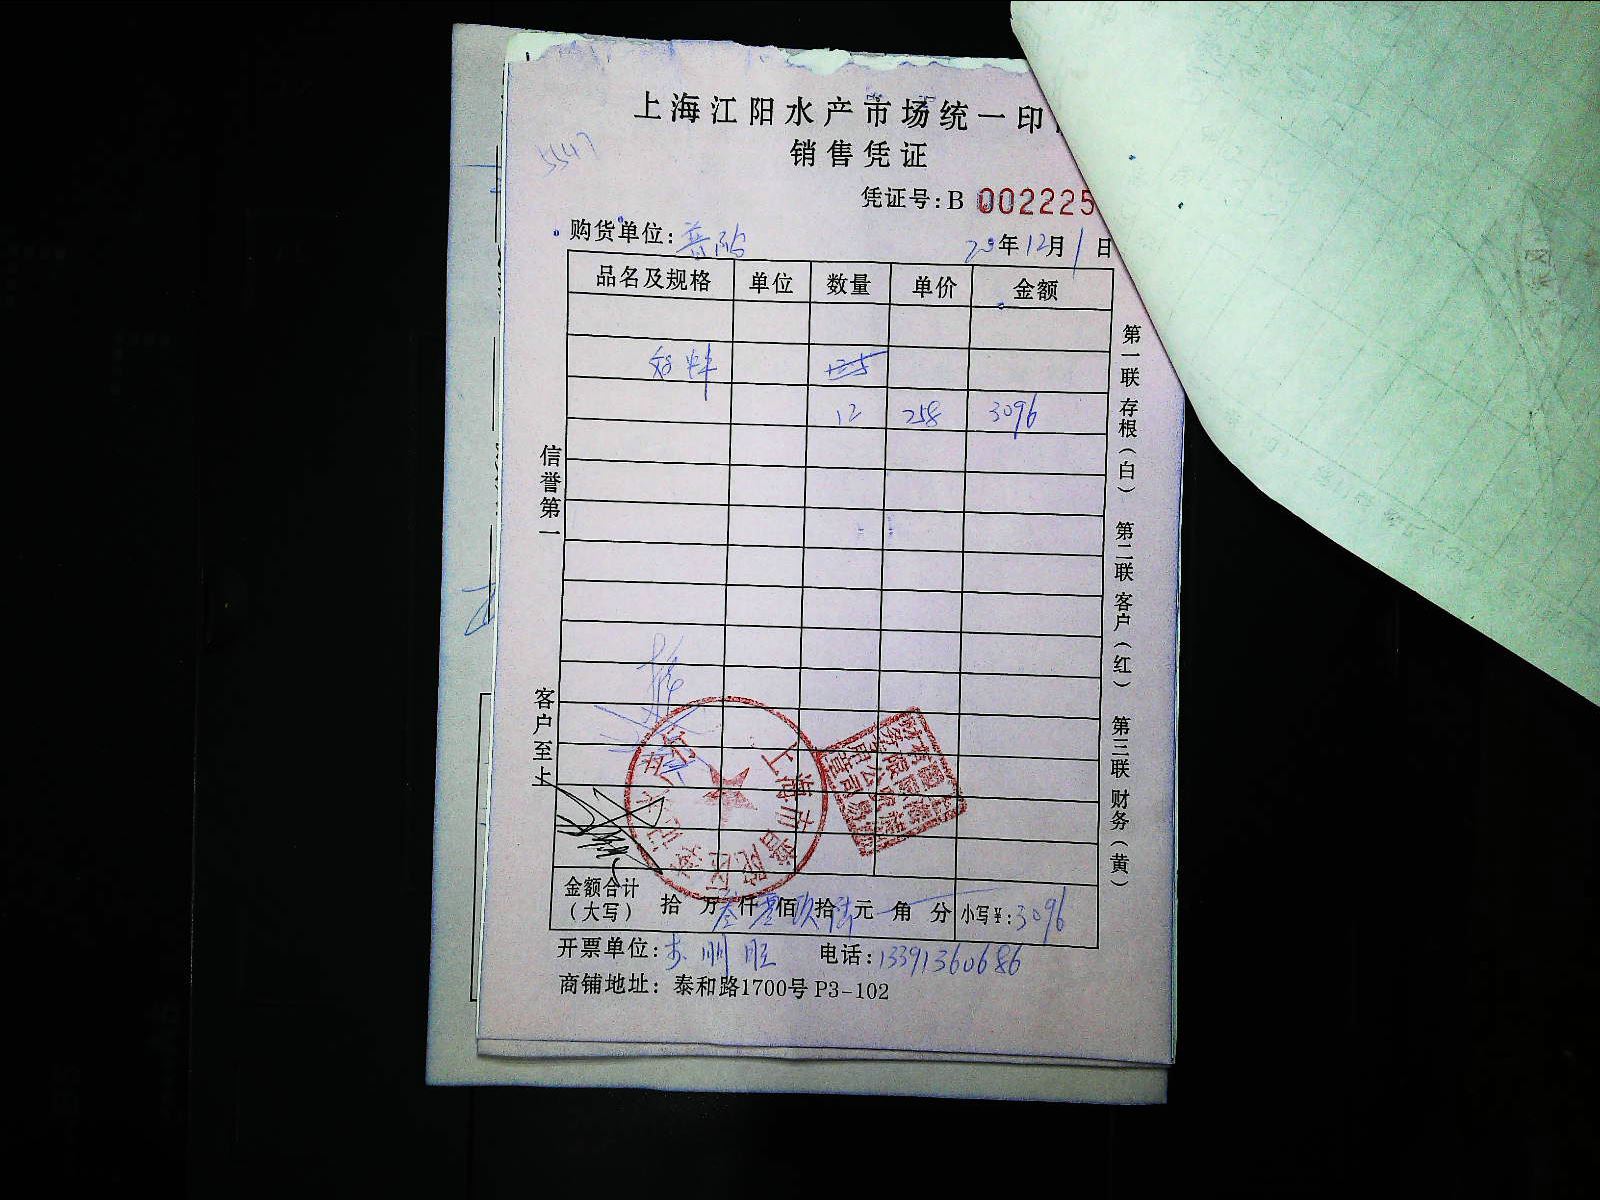 上海江阳水产市场统一印
销售凭证
5547
凭证号:B 002225
购货单位:普陀 20年12月1日
品名及规格 单位 数量 单价 金额
12 258 3096
信誉第一
客户至上
第一联 存根(白) 第二联 客户(红) 第三联 财务(黄)
上海市普陀区
金额合计(大写) 拾 万叁仟零佰玖拾陆元 角 分 小写¥:3096
开票单位: 电话:13391360686
商铺地址: 泰和路1700号 P3-102